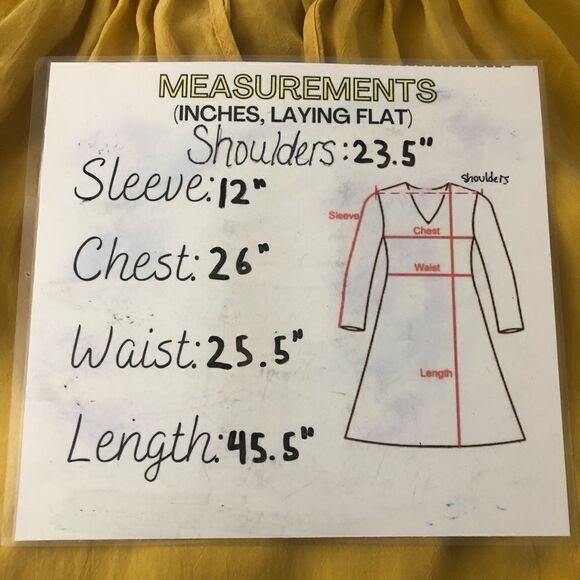 MEASUREMENTS
(INCHES, LAYING FLAT)
Shoulders: 23.5"
Sleeve: 12"
Chest: 26"
Waist: 25.5"
Length: 45.5"
shoulders
Sleeve
Chest
Waist
Length